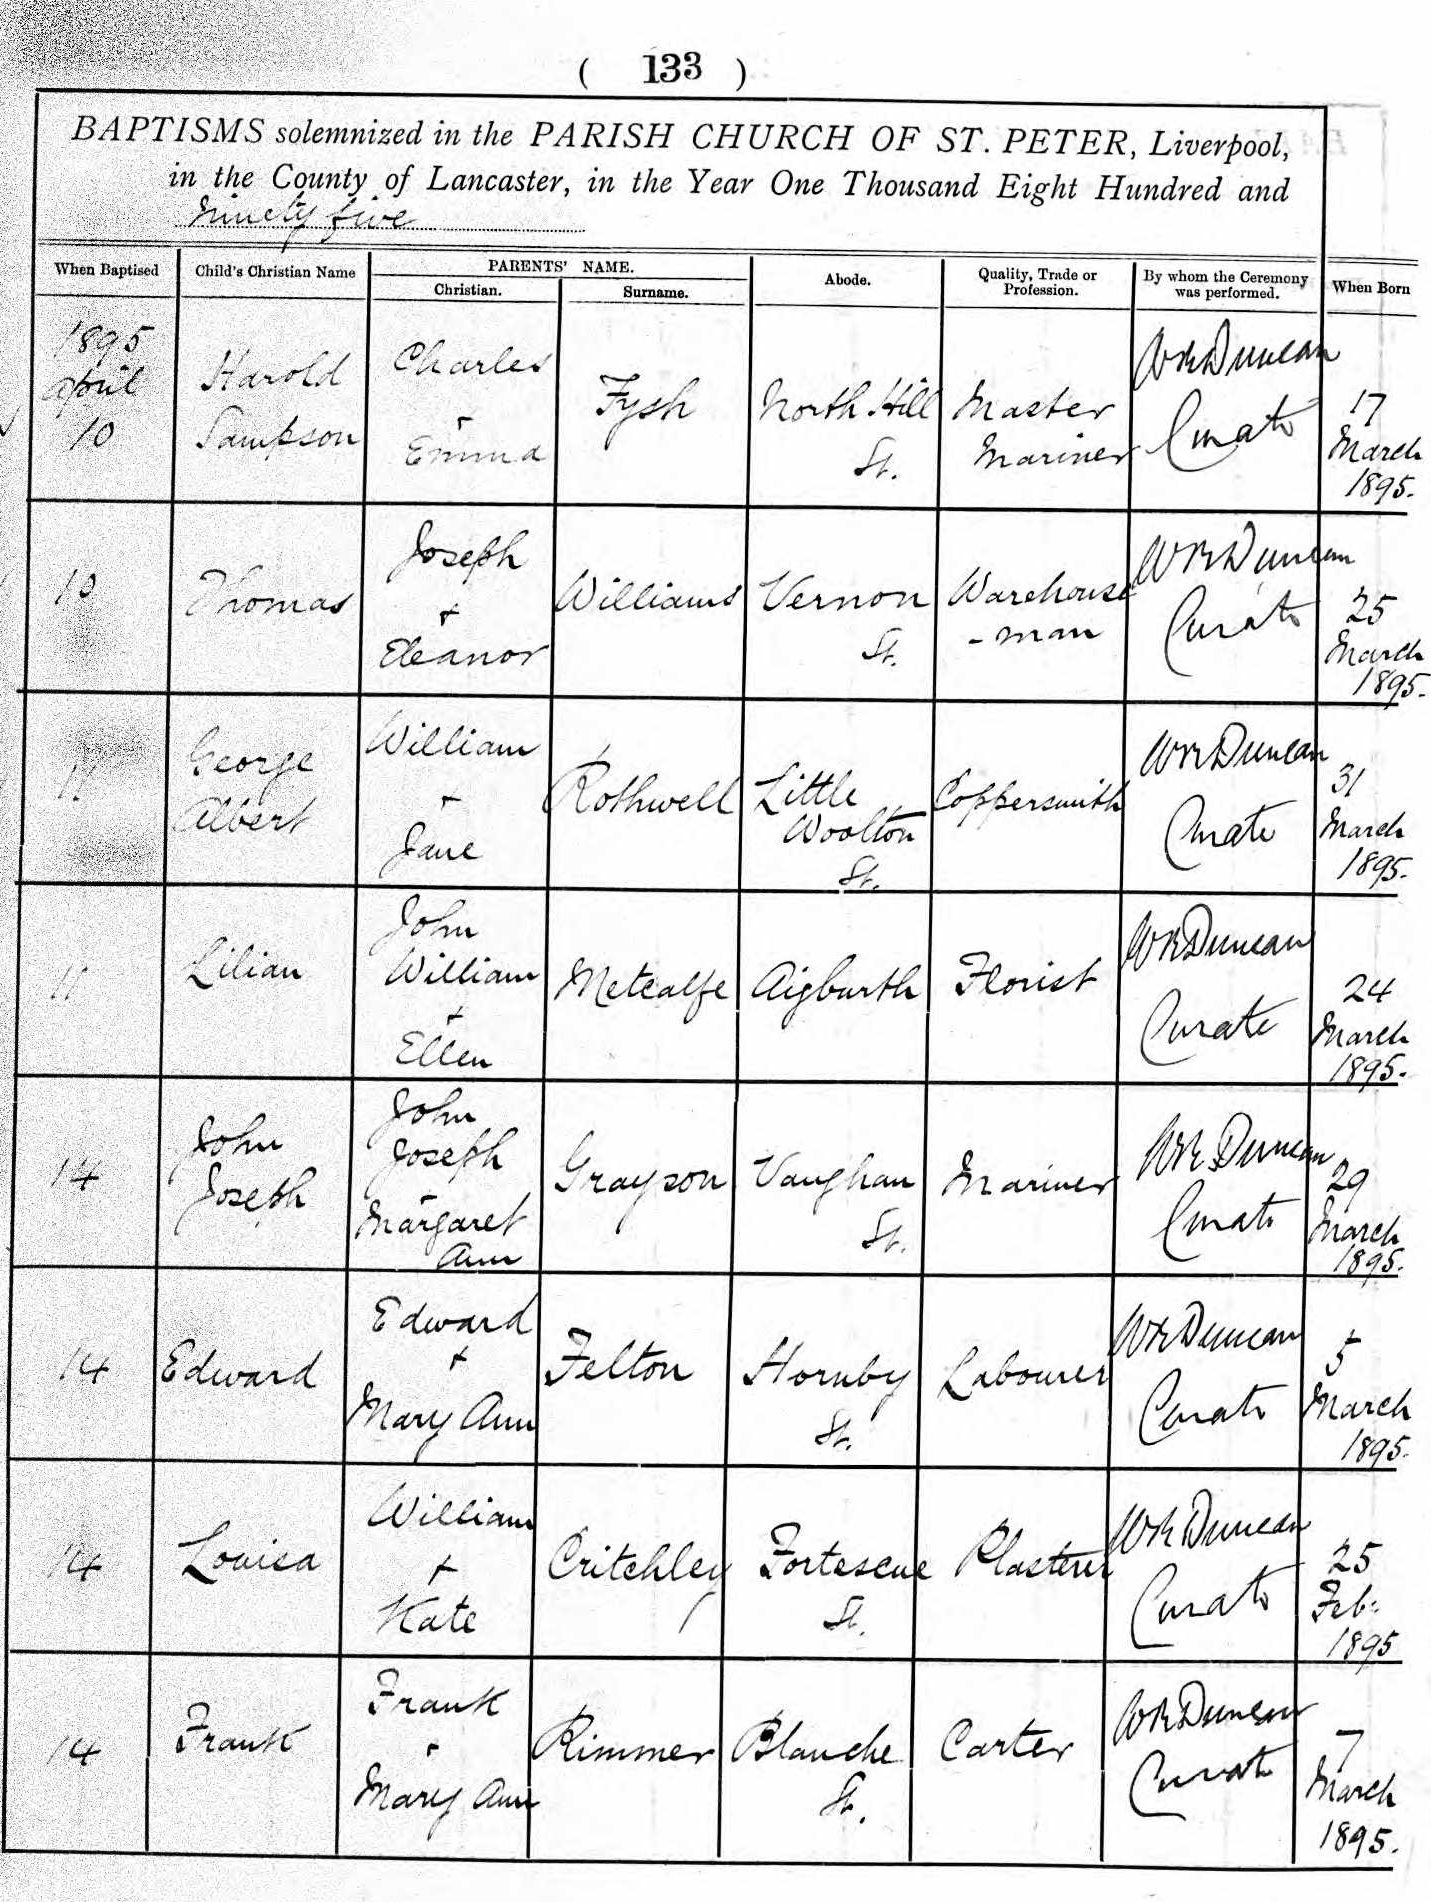 ( 133 )
BAPTISMS solemnized in the PARISH CHURCH OF ST. PETER, Liverpool,
in the County of Lancaster, in the Year One Thousand Eight Hundred and
Ninety five
When Baptised Child's Christian Name PARENTS' NAME. Christian. Surname. Abode. Quality, Trade or Profession. By whom the Ceremony was performed. When Born
1895 April 10 Harold Sampson Charles + Emma Fysh North Hill St. Master Mariner WR Duncan Curate 17 March 1895.
10 Thomas Joseph + Eleanor Williams Vernon St. Warehouse -man WR Duncan Curate 25 March 1895.
11 George Albert William + Jane Rothwell Little Woolton St. Coppersmith WR Duncan Curate 31 March 1895.
11 Lilian John William + Ellen Metcalfe Aigburth Florist WR Duncan Curate 24 March 1895.
14 John Joseph John Joseph + Margaret Ann Grayson Vaughan St. Mariner WR Duncan Curate 29 March 1895.
14 Edward Edward + Mary Ann Felton Hornby St. Labourer WR Duncan Curate 5 March 1895.
14 Louisa William + Kate Critchley Fortescue St. Plasterer WR Duncan Curate 25 Feb: 1895
14 Frank Frank + Mary Ann Rimmer Blanche St. Carter WR Duncan Curate 7 March 1895.